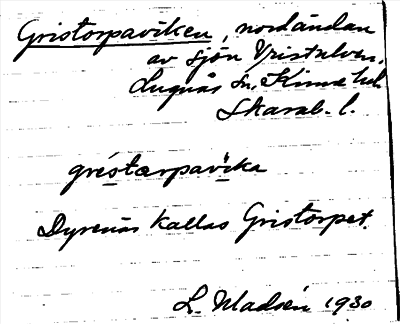 Gristorpaviken, nordändan
av sjön Vristulven,
Lugnås sn, Kinne hd
Skarab. l.
gristærpavika
Dyrenäs kallas Gristorpet.
L. Madsén 1930